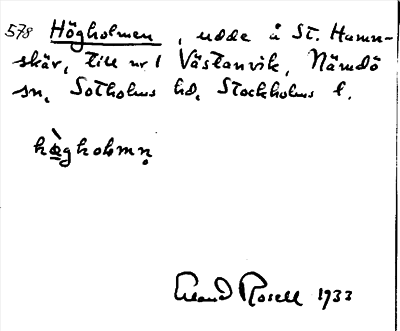 578 Högholmen, udde å St. Hamn-
skär, till nr 1 Västanvik, Nämdö
sn, Sotholms hd, Stockholms l.
hø̀gholmn̥
Erland Rosell 1933